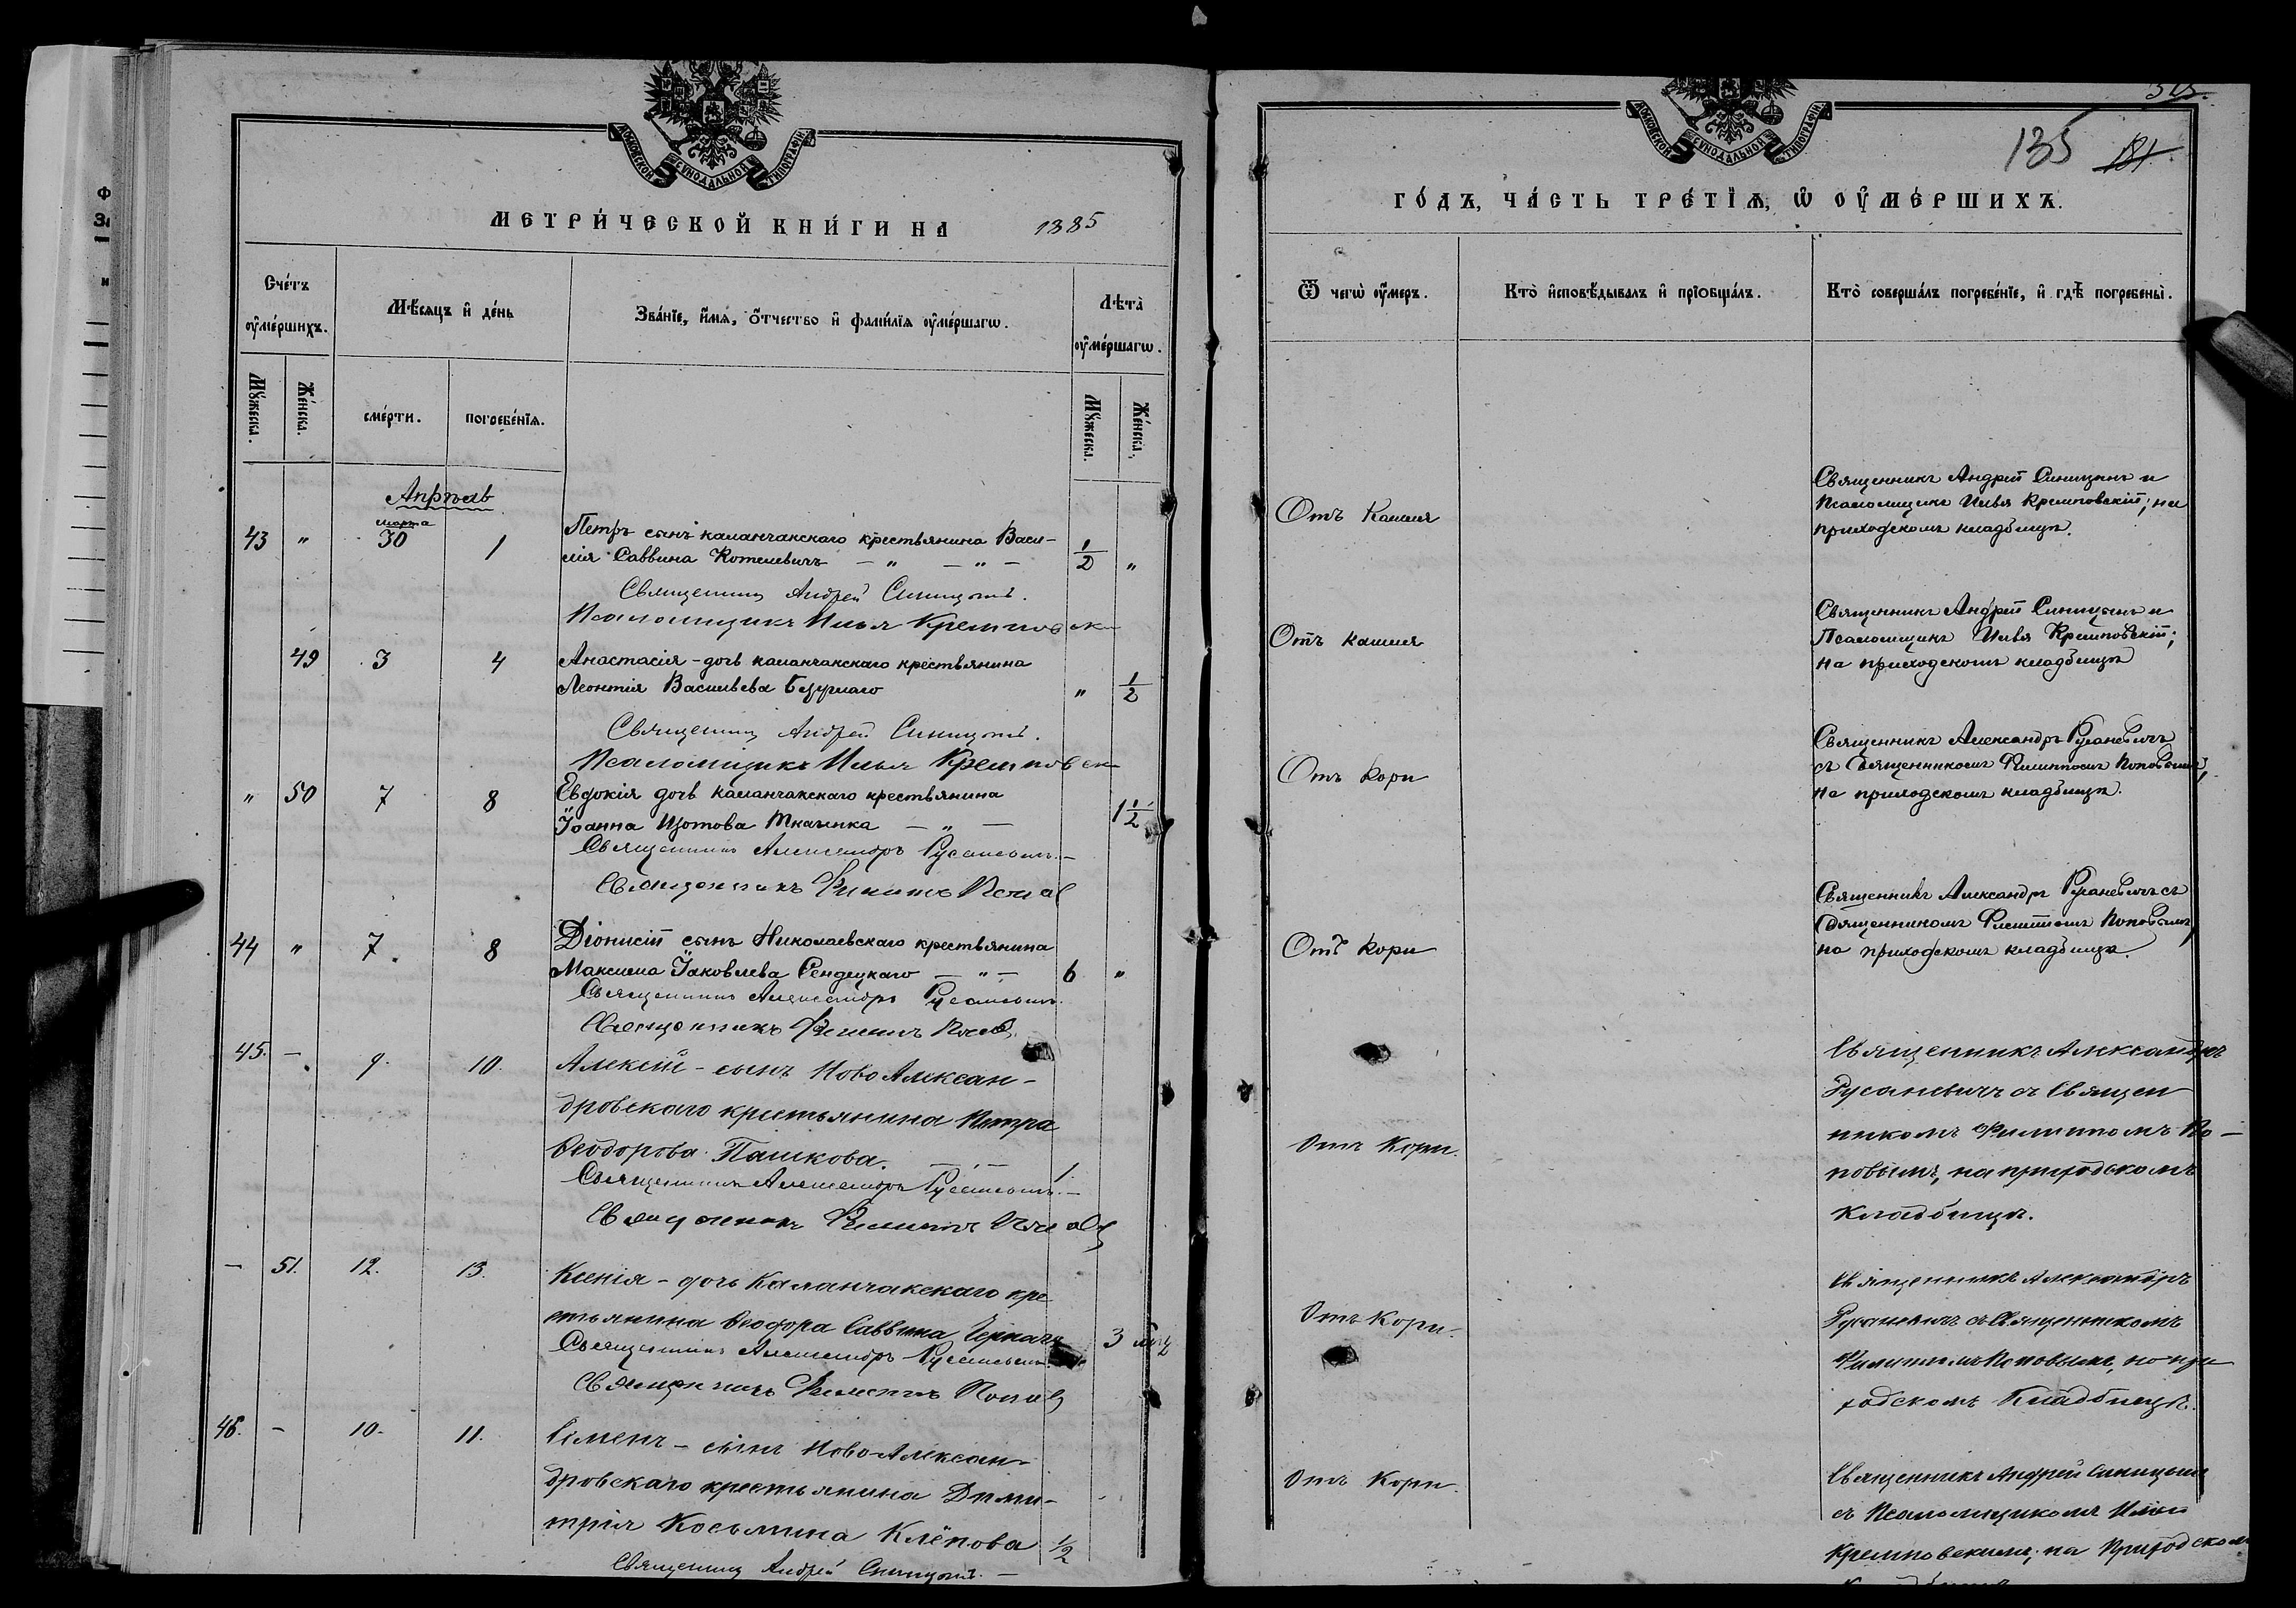 МОСКОВСКОЙ СѴНОДАЛЬНОЙ ТИПОГРАФІИ
МЕТРИ́ЧЕСКОЙ КНИ́ГИ НА 1885
Сче́тъ ᲂу҆ме́ршихъ.
Мѣ́сяцъ и҆ де́нь
Зва́нїе, и҆́мѧ, ѻ҆́тчество и҆ фами́лїѧ ᲂу҆ме́ршагѡ.
Лѣта̀ ᲂу҆ме́ршагѡ.
Мꙋ́жеска.
Же́нска.
сме́рти.
погребе́нїѧ.
Мꙋ́жеска.
Же́нска.
Апрѣль
марта
43 " 30 1 Петръ сынъ каланчакскаго крестьянина Васи-
лія Саввина Котелевичъ — " — " — 1/2 "
Священникъ Андрей Синицынъ.
Псаломщикъ Илья Кремповск
49 3 4 Анастасія - дочь каланчакскаго крестьянина
Леонтія Васильева " 1/2
Священникъ Андрей Синицынъ.
Псаломщикъ Илья Кремповск
" 50 7 8 Евдокія дочь каланчакскаго крестьянина
Іоанна Изотова Ткаченка — " — 1 1/2
Священникъ Александръ Русаневичъ.—
Священникъ Филиппъ Попов
44 " 7. 8 Діонисій сынъ Николаевскаго крестьянина
Максима Іаковлева Сендецкаго — " — 6 "
Священникъ Александръ Русаневичъ.
Священникъ Филиппъ Попов
45. — 9. 10. Алексій - сынъ Ново Алексан-
дровскаго крестьянина Петра
Ѳеодорова Пашкова. 1
Священникъ Александръ Русаневичъ.—
Священникъ Филиппъ Попов
— 51. 12. 13. Ксенія - дочь Каланчакскаго кре
стьянина Ѳеодора Саввина 3 мѣц
Священникъ Александръ Русаневичъ
Священникъ Филиппъ Попов
46. — 10. 11. Сименъ - сынъ Ново-Алексан-
дровскаго крестьянина Дими-
трія Косьмина Клёпова 1/2
Священникъ Андрей Синицынъ. —
МОСКОВСКОЙ СѴНОДАЛЬНОЙ ТИПОГРАФІИ
135 181.
ГО́ДЪ, ЧА́СТЬ ТРЕ́ТЇѦ, Ѿ ОУ҆МЕ́РШИХЪ.
Ѿ чегѡ̀ ᲂу҆́меръ.
Кто̀ и҆сповѣ́дывалъ и҆ прїобща́лъ.
Кто̀ соверша́лъ погребе́нїе, и҆ гдѣ̀ погребены̀.
Отъ кашля
Священникъ Андрей Синицынъ и
Псаломщикъ Илья Кремповскій; на
приходскомъ кладбищѣ.
Отъ кашля
Священникъ Андрей Синицынъ и
Псаломщикъ Илья Кремповскій;
на приходскомъ кладбищѣ
Отъ кори
Священникъ Александръ Русаневичъ
съ Священникомъ Филиппомъ Поповымъ,
на приходскомъ кладбищѣ.
Отъ кори
Священникъ Александръ Русаневичъ съ
Священникомъ Филиппомъ Поповымъ,
на приходскомъ кладбищѣ.
Отъ Кори.
Священникъ Александръ
Русаневичъ съ Священ
никомъ Филиппомъ По-
повымъ, на приходскомъ
кладбищѣ.
Отъ Кори.
Священникъ Александръ
Русаневичъ съ Священникомъ
Филиппомъ Поповымъ, на при
ходскомъ Кладбищѣ.
Отъ Кори.
Священникъ Андрей Синицынъ
съ Псаломщикомъ Ильею
Кремповскимъ, на Приходском